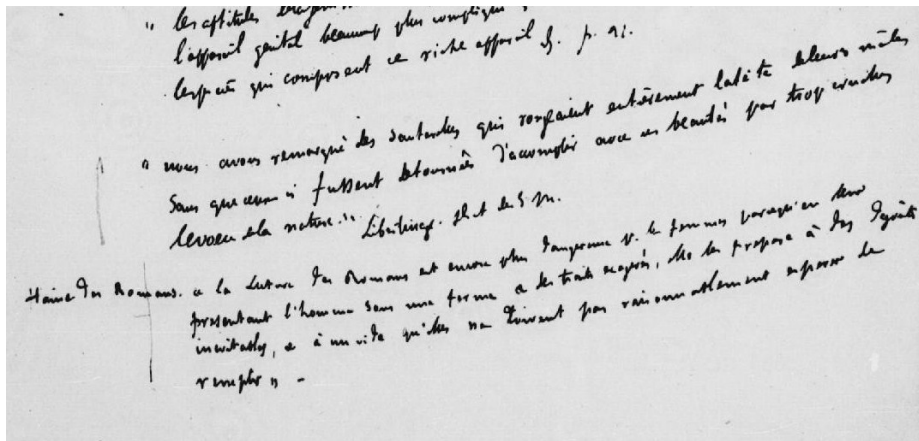 " les aptitudes
l'appareil génital beaucoup plus compliqué,
qui composent ce riche appareil p. 91.
" nous avons remarqué des sauterelles qui rongeaient entièrement la tête de leurs mâles
sans que ceux-ci fussent détournés d'accomplir avec ces beautés par trop cruelles
le voeu de la nature ".
Haine des Romans. " la lecture des Romans est encore plus dangereuse p. les femmes parce qu'en leur
présentant l'homme sous une forme & des traits exagérés, elle les prépare à des dégoûts
inévitables, & à un vide qu'elles ne doivent pas raisonnablement espérer de
remplir " -